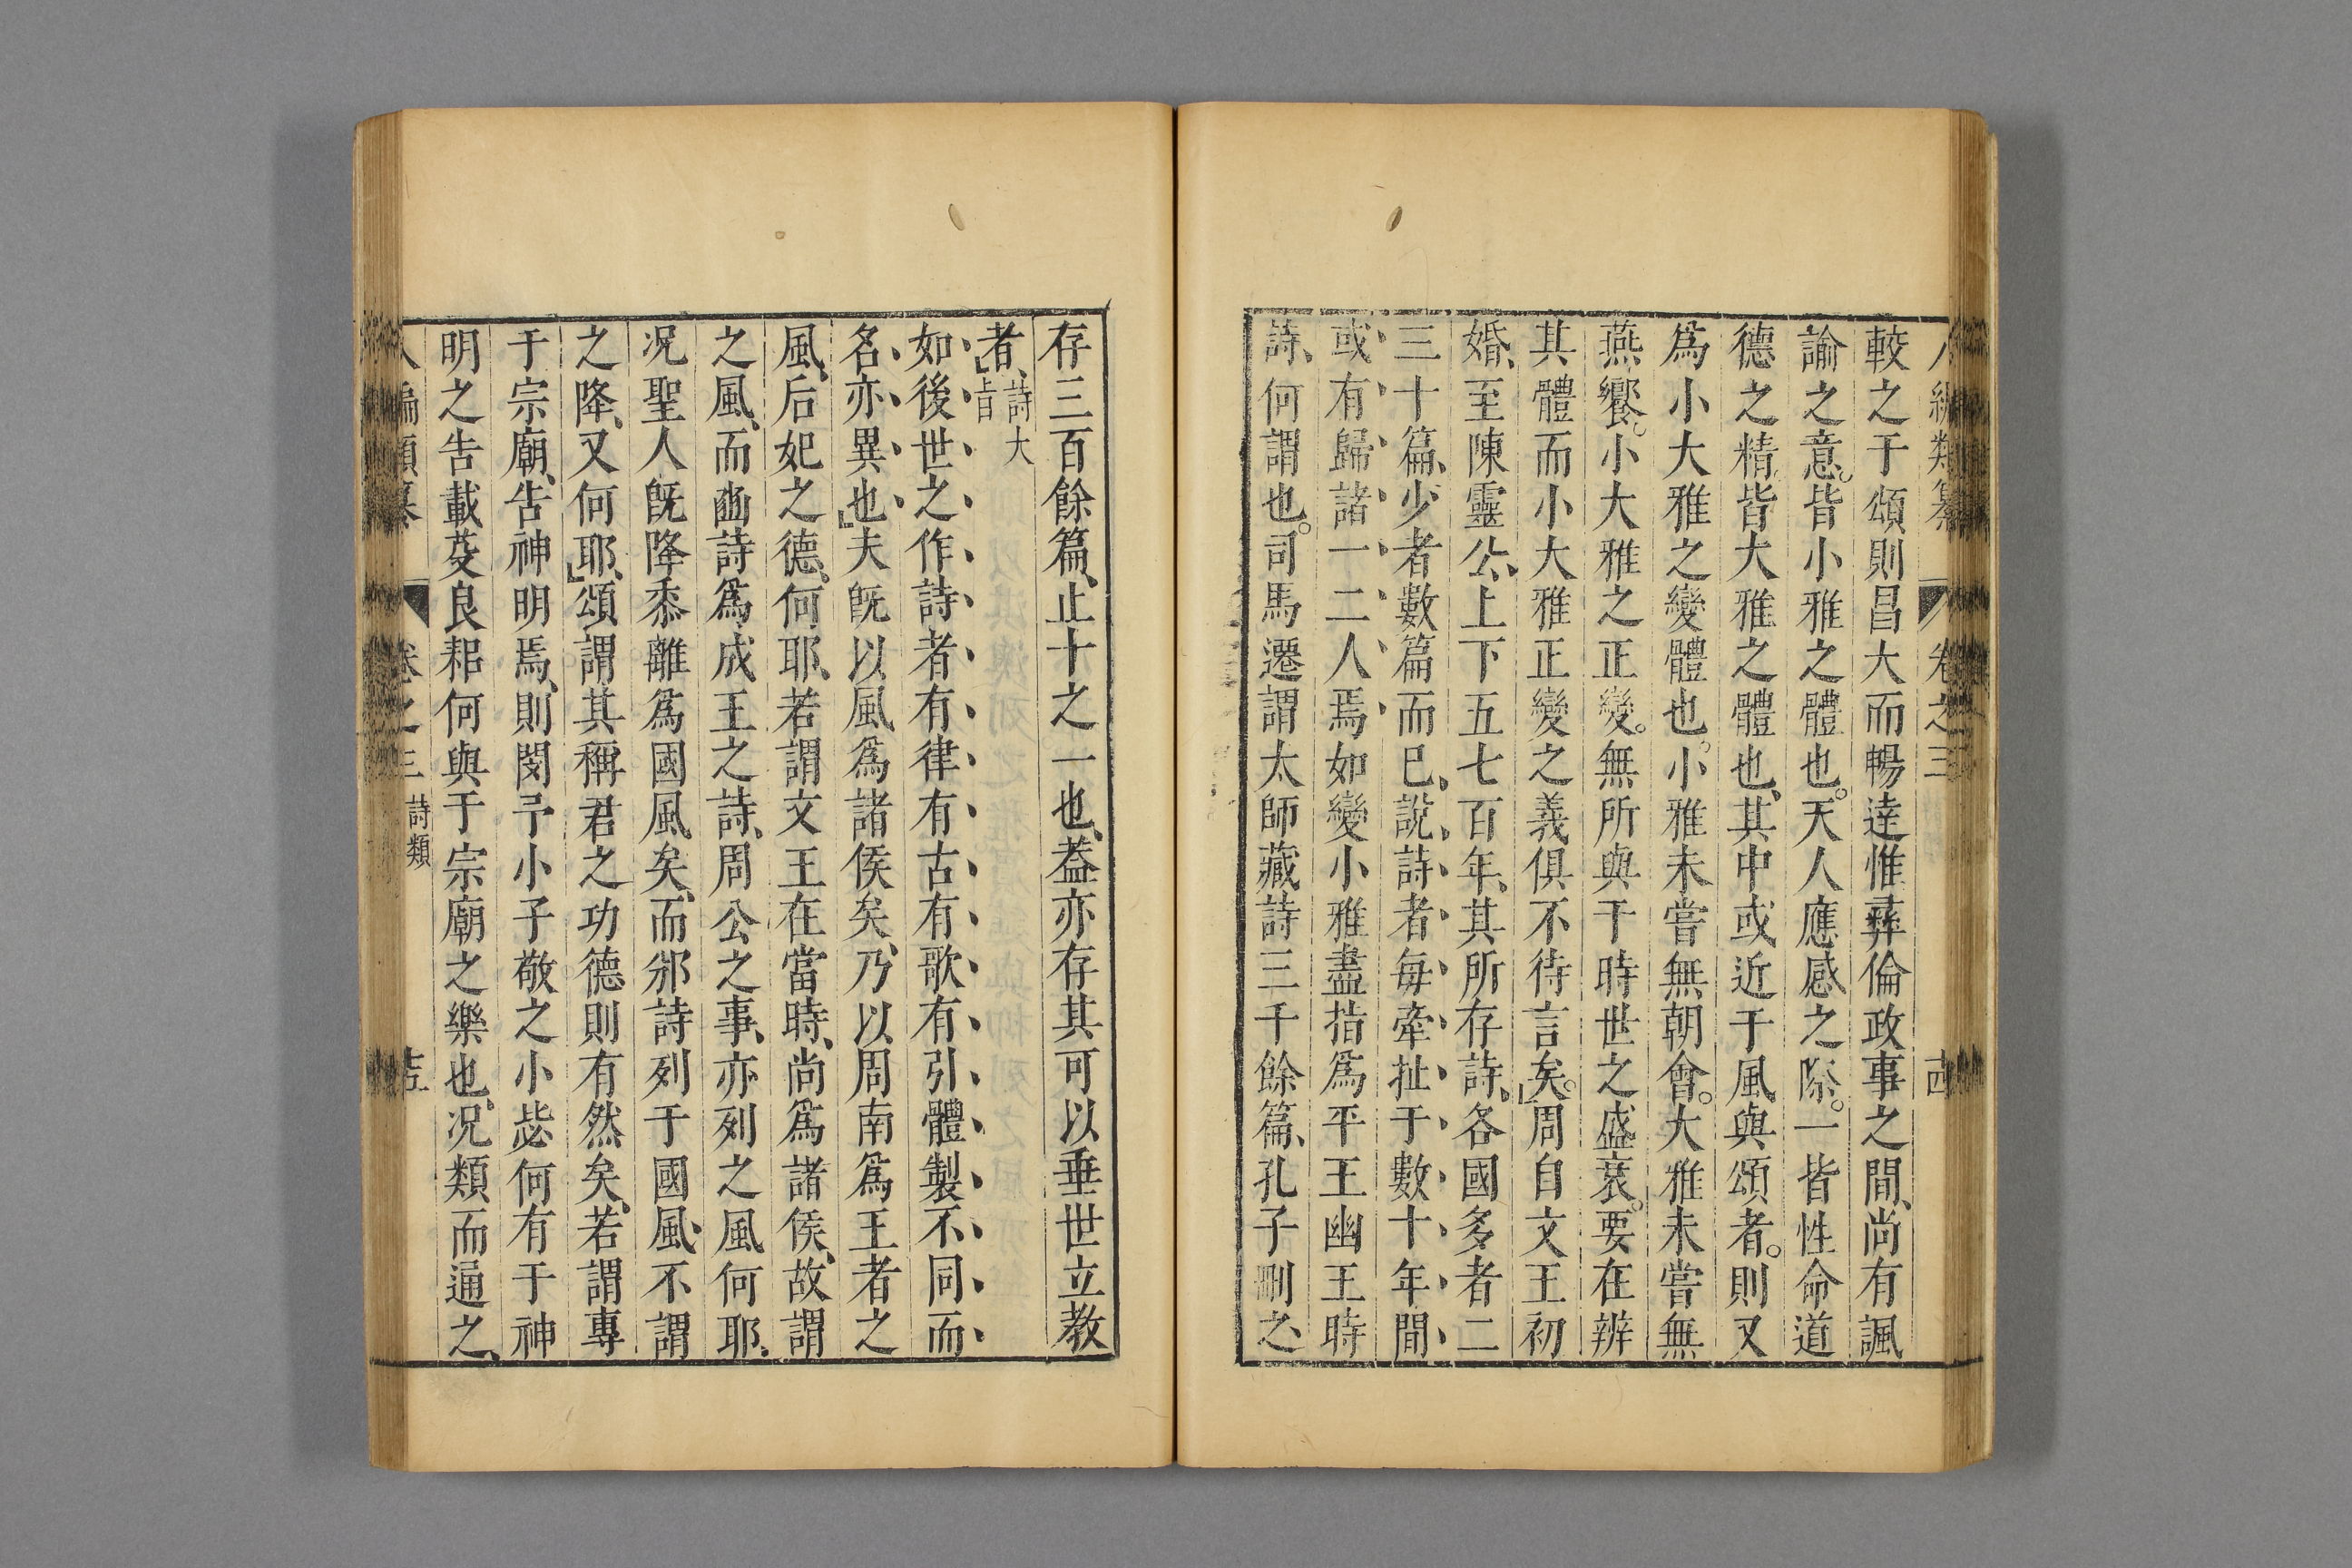 八編類纂 卷之三 十四
較之于頌則昌大而暢達惟彝倫政事之間、尚有諷
諭之意。皆小雅之體也。天人應感之際。一皆性命道
德之精皆大雅之體也、其中或近于風與頌者。則又
為小大雅之變體也。小雅未嘗無朝會。大雅未嘗無
燕饗。小大雅之正變。無所與于時世之盛衰。要在辨
其體而小大雅正變之義俱不待言矣。周自文王初
婚、至陳靈公、上下五七百年、其所存詩、各國多者二
三十篇、少者數篇而已、說詩者每牽扯于數十年間、
或有歸諸一二人焉如變小雅盡指為平王幽王時
詩、何謂也。司馬遷謂太師藏詩三千餘篇、孔子刪之、
存三百餘篇、止十之一也、葢亦存其可以垂世立教
者、詩大旨
如後世之作詩者有律有古有歌有引體製不同而
名亦異也夫既以風為諸侯矣、乃以周南為王者之
風、后妃之德、何耶、若謂文王在當時、尚為諸侯、故謂
之風、而豳詩為成王之詩、周公之事、亦列之風何耶、
况聖人既降黍離為國風矣、而邠詩列于國風、不謂
之降、又何耶、頌謂其稱君之功德則有然矣、若謂專
于宗廟、告神明焉、則閔予小子敬之小毖何有于神
明之告載芟良耜何與于宗廟之樂也、况類而通之、
八編類纂 卷之三 詩類 十五